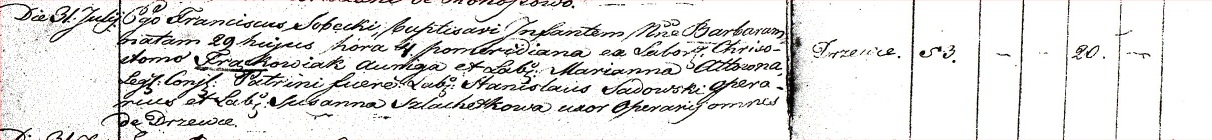 de Konopowo.
Die 31. Julij Ego Franciscus Sobecki, baptisavi Infantem, Nne Barbaram
natam 29 hujus, hora 4 pomeridiana ea Labor: Chriso-
stomo Frackowiak auriga et Lab: Marianna
Legit: Conj: Patrini fuere: Lab: Stanislaus Sadowski opera-
rius et Lab: Susanna Szlachetkowa uxor Operarij omnes
de Drzewce.
Drzewce. 53. — — 20. —